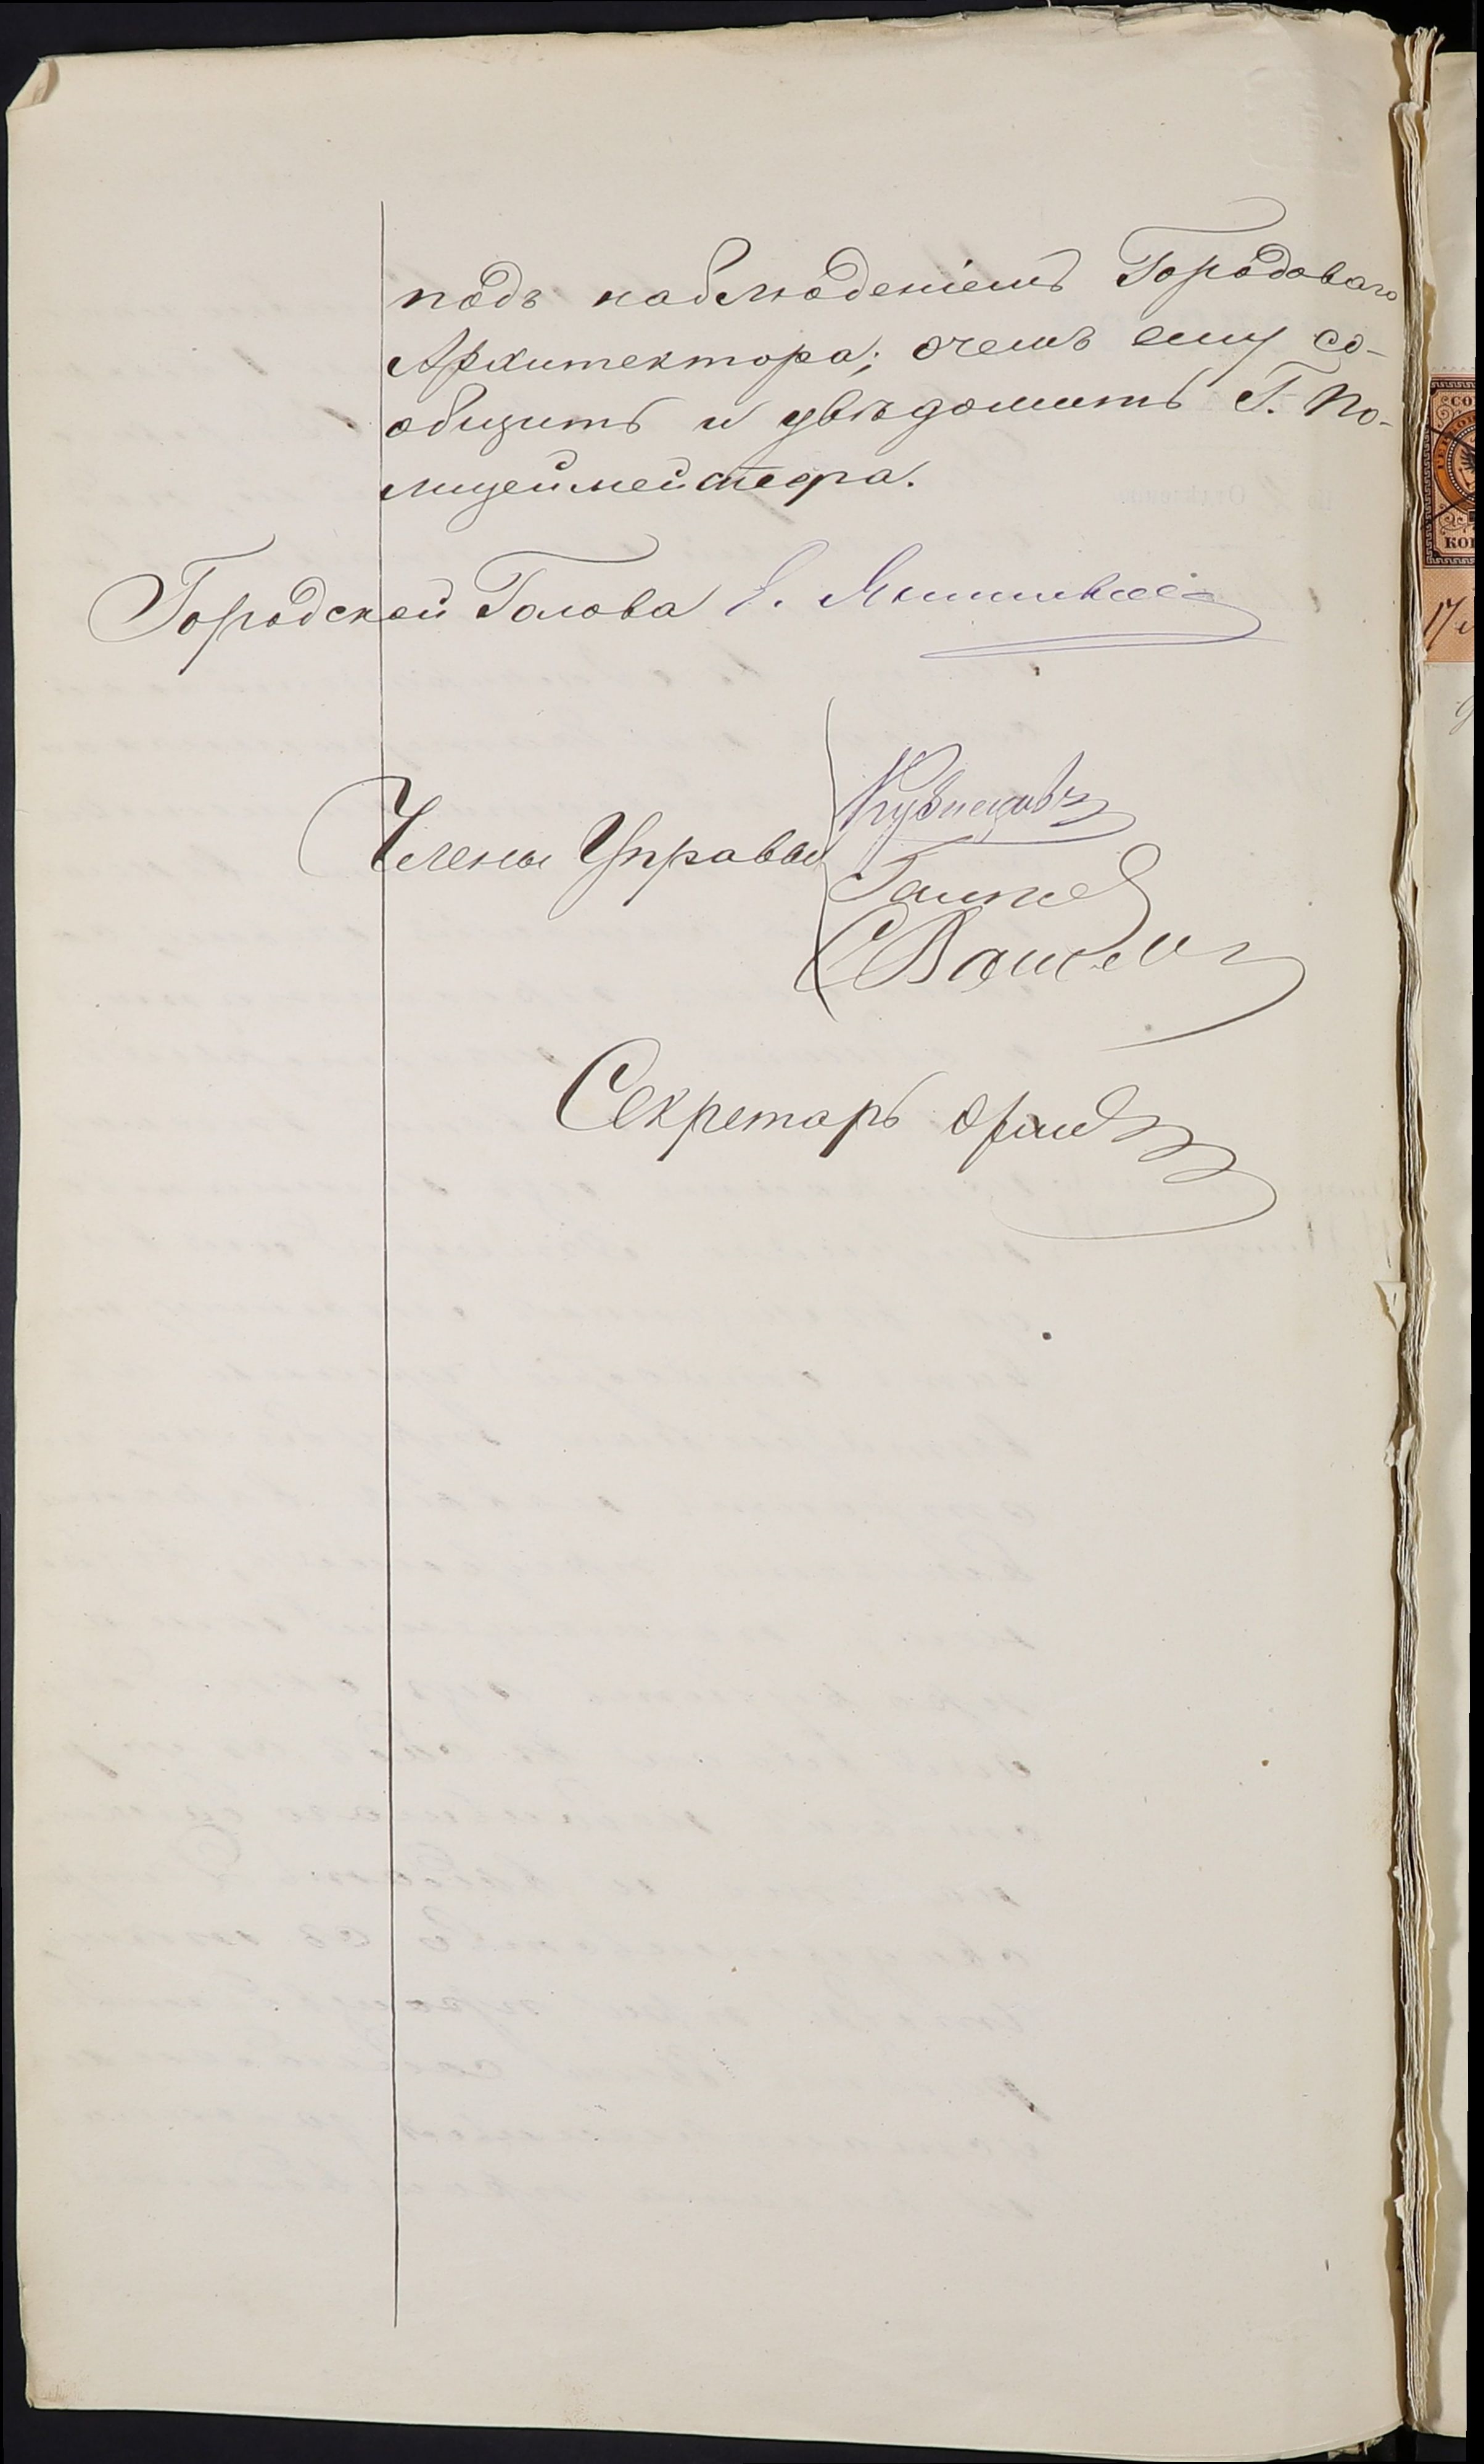 подъ наблюденіемъ Городоваго
Архитектора; очемъ ему со-
общить и увѣдомить Г. По-
лицеймейстера.
Городской Голова
Члены Управы
Кузнецовъ
Секретарь